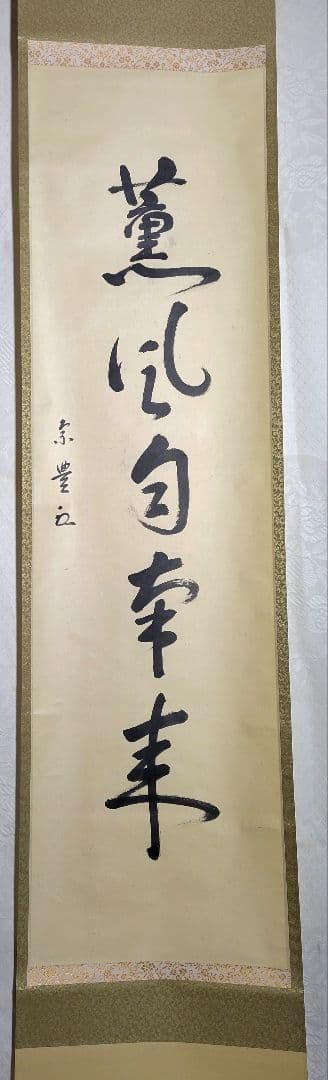 薫風自南来
宗豊書